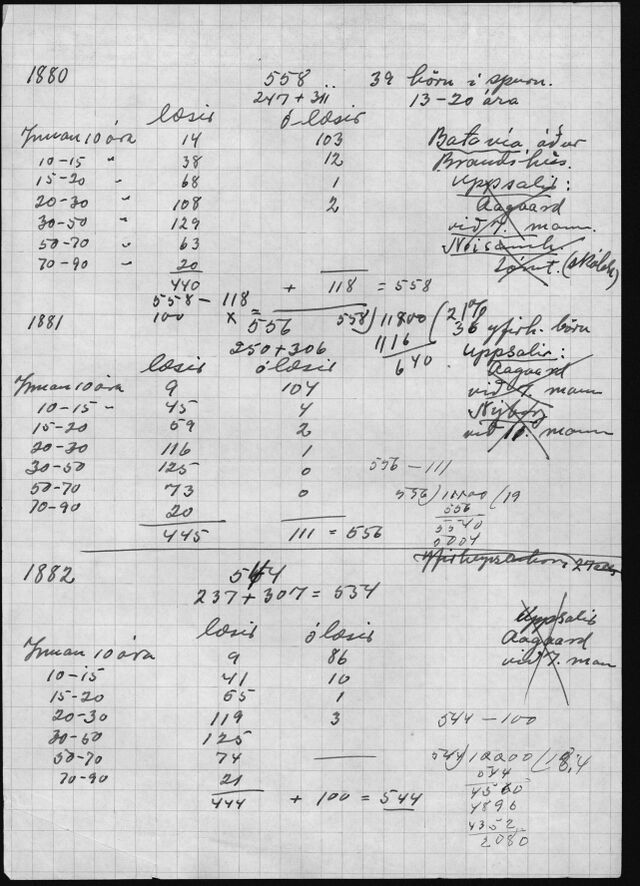 1880 558 39 börn í spurn.
247 + 311 13-20 ára
læsir ólæsir
Innan 10 ára 14 103 Batavía, áður
10-15 " 38 12 Brandshús.
15-20 " 68 1 Uppsalir:
20-30 " 108 2 Aagaard
30-50 " 129 við 7. mann.
50-70 " 63
70-90 " 20 (skóli)
440 + 118 = 558
558 - 118
100 x = 558)11800(21%
1881 556 1116 36 yfirh. börn
250 + 306 640 Uppsalir:
læsir ólæsir Aagaard
Innan 10 ára 9 104 við 7. mann
10-15 " 45 4 Nýborg
15-20 59 2 við 11. mann
20-30 116 1
30-50 125 0 556 - 111
50-70 73 0 556)11100(19
70-90 20 556
5540
445 111 = 556 5004
1882 544
237 + 307 = 534
Uppsalir
læsir ólæsir Aagaard
Innan 10 ára 9 86 við 7. man
10-15 41 10
15-20 65 1
20-30 119 3 544 - 100
30-50 125
50-70 74 544)10000(18.4
70-90 21 544
444 + 100 = 544 4560
4896
4352
2080